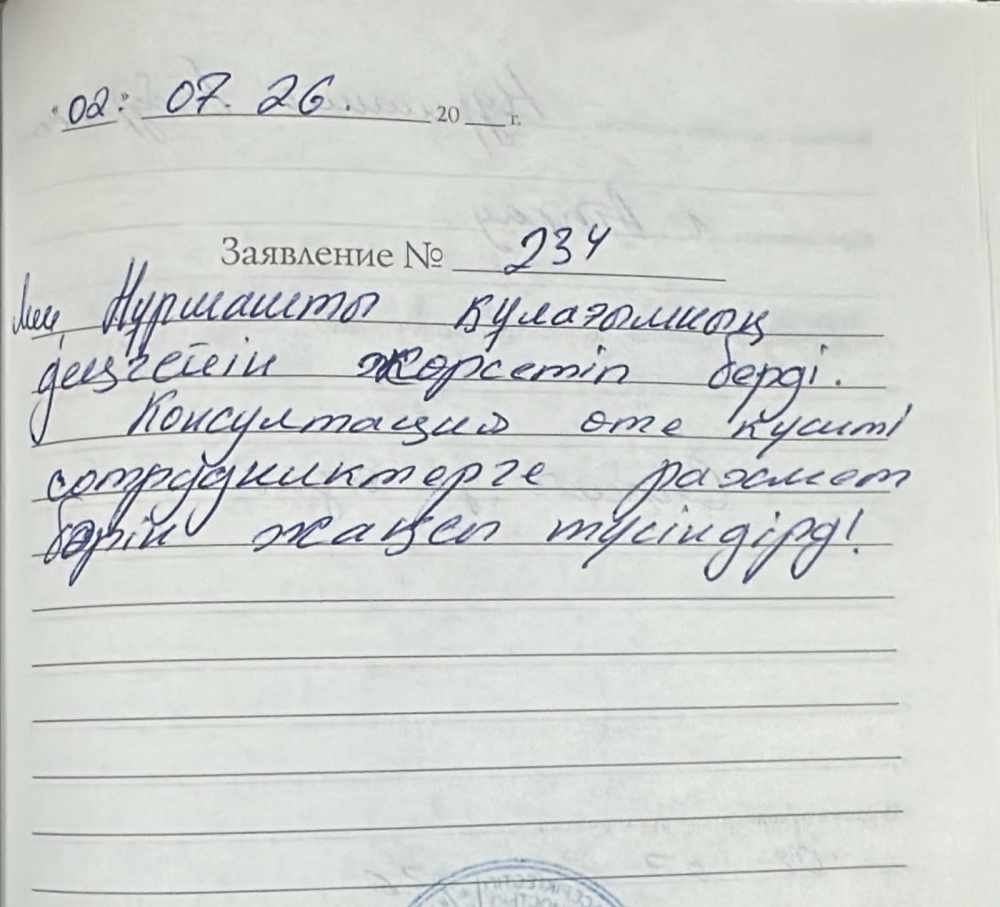 "02" 07. 26. 20 г.
Заявление № 234
Мен Нурмашты құлағымның
деңгейін көрсетіп берді.
Консультация өте күшті
сотрудниктерге рахмет
бәрін жақсы түсіндірді!